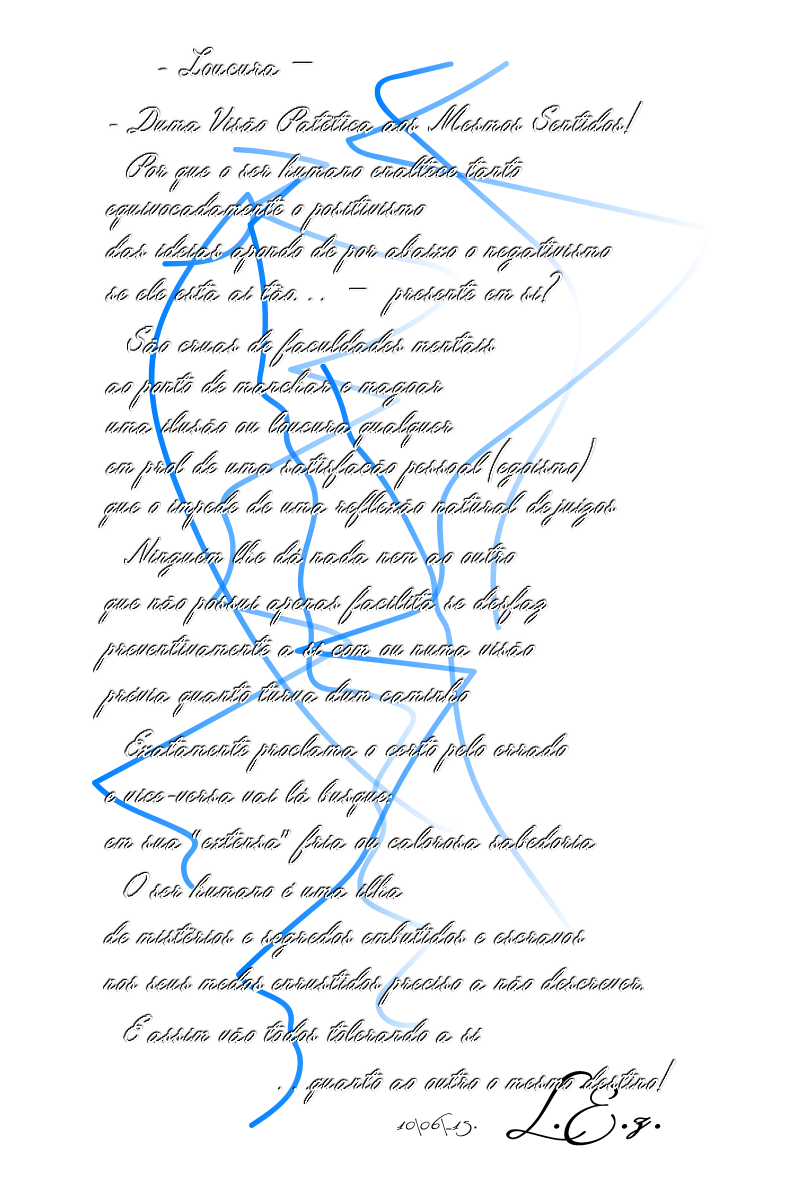 - Loucura —
- Duma Visão Patética aos Mesmos Sentidos!
Por que o ser humano enaltece tanto
equivocadamente o positivismo
das ideias apondo de por abaixo o negativismo
se ele está ai tão... — presente em si?
São cruas de faculdades mentais
ao ponto de manchar e magoar
uma ilusão ou loucura qualquer
em prol de uma satisfação pessoal (egoísmo)
que o impede de uma reflexão natural de juigos
Ninguém lhe dá nada nem ao outro
que não possui apenas facilita se desfaz
preventivamente a si com ou numa visão
prévia quanto turva dum caminho
Exatamente proclama o certo pelo errado
e vice-versa vai lá busque;
em sua "extensa" fria ou calorosa sabedoria
O ser humano é uma ilha
de mistérios e segredos embutidos e escravos
nos seus medos enrustidos preciso a não descrever.
E assim vão todos tolerando a si
...quanto ao outro o mesmo destino!
10\06\_15.
L.E.z.